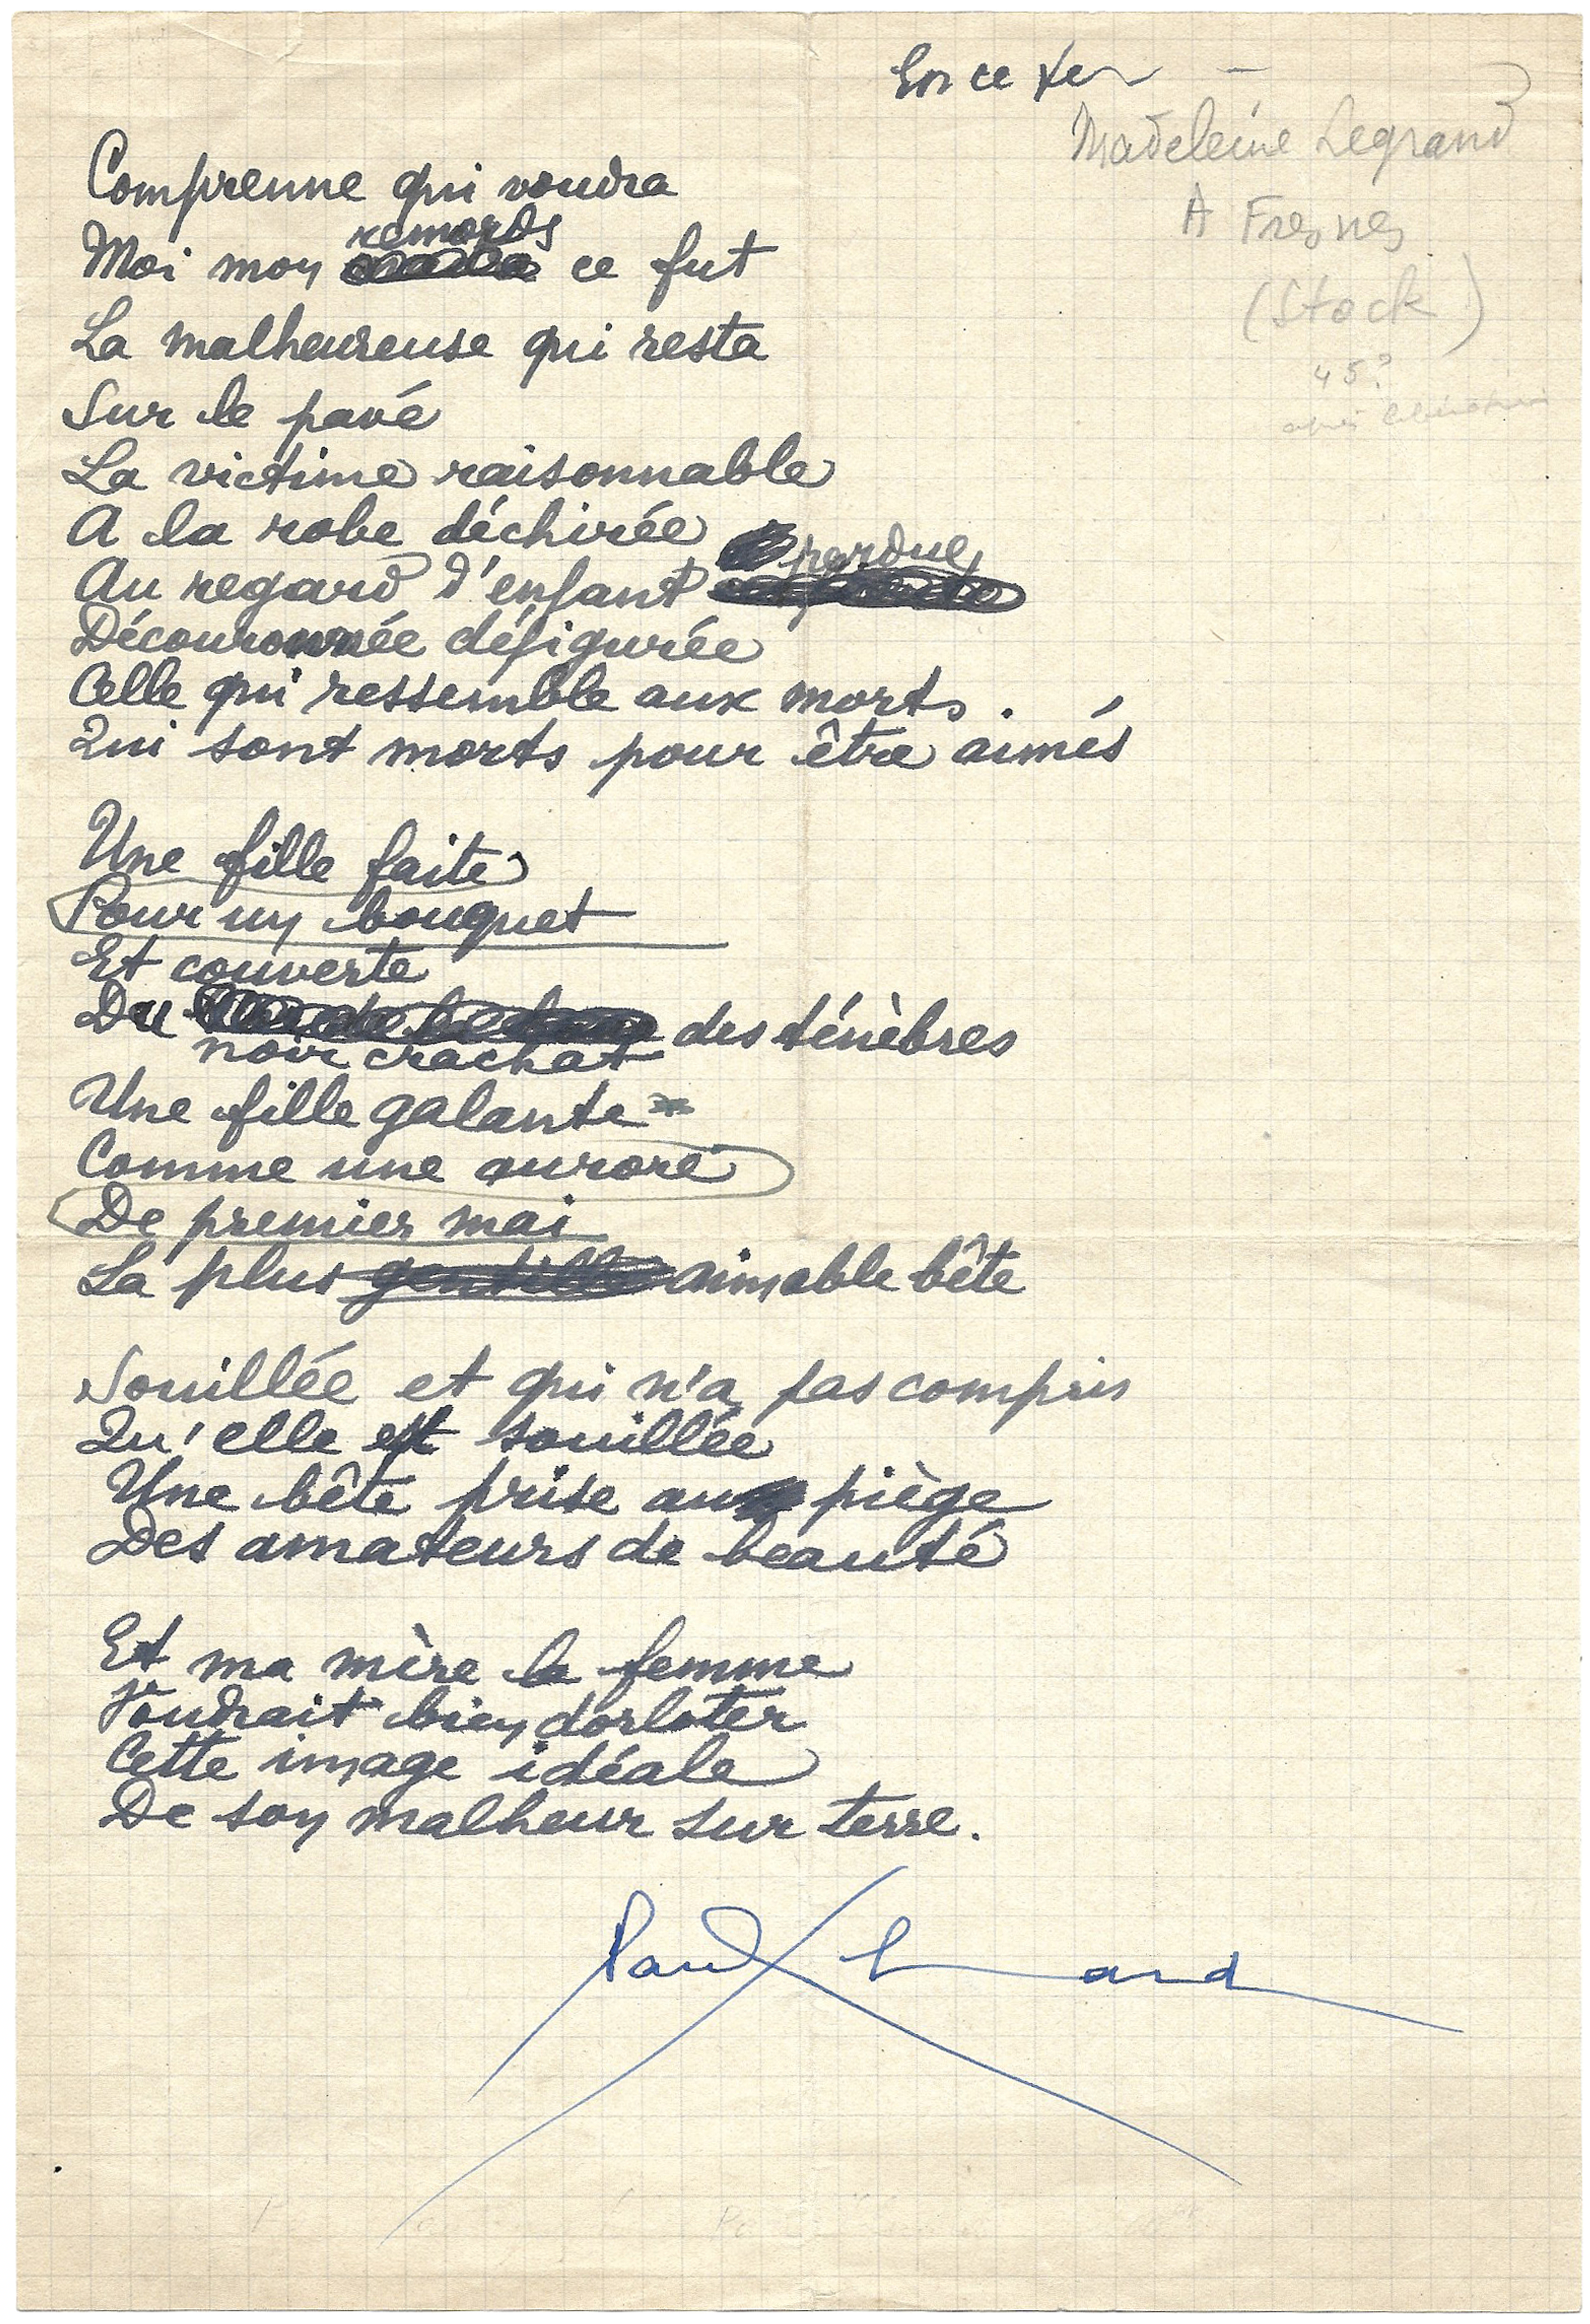 En ce tem
Madeleine Legrand
A Fresnes
(Stock)
45?
après libération
Comprenne qui voudra
Moi mon remords ce fut
La malheureuse qui resta
Sur le pavé
La victime raisonnable
A la robe déchirée
Au regard d'enfant perdue
Découronnée défigurée
Celle qui ressemble aux morts.
Qui sont morts pour être aimés
Une fille faite
Pour un bouquet
Et couverte
Du noir crachat des ténèbres
Une fille galante
Comme une aurore
De premier mai
La plus gentille aimable bête
Souillée et qui n'a pas compris
Qu'elle est souillée
Une bête prise au piège
Des amateurs de beauté
Et ma mère la femme
Voudrait bien dorloter
Cette image idéale
De son malheur sur terre.
Paul Eluard